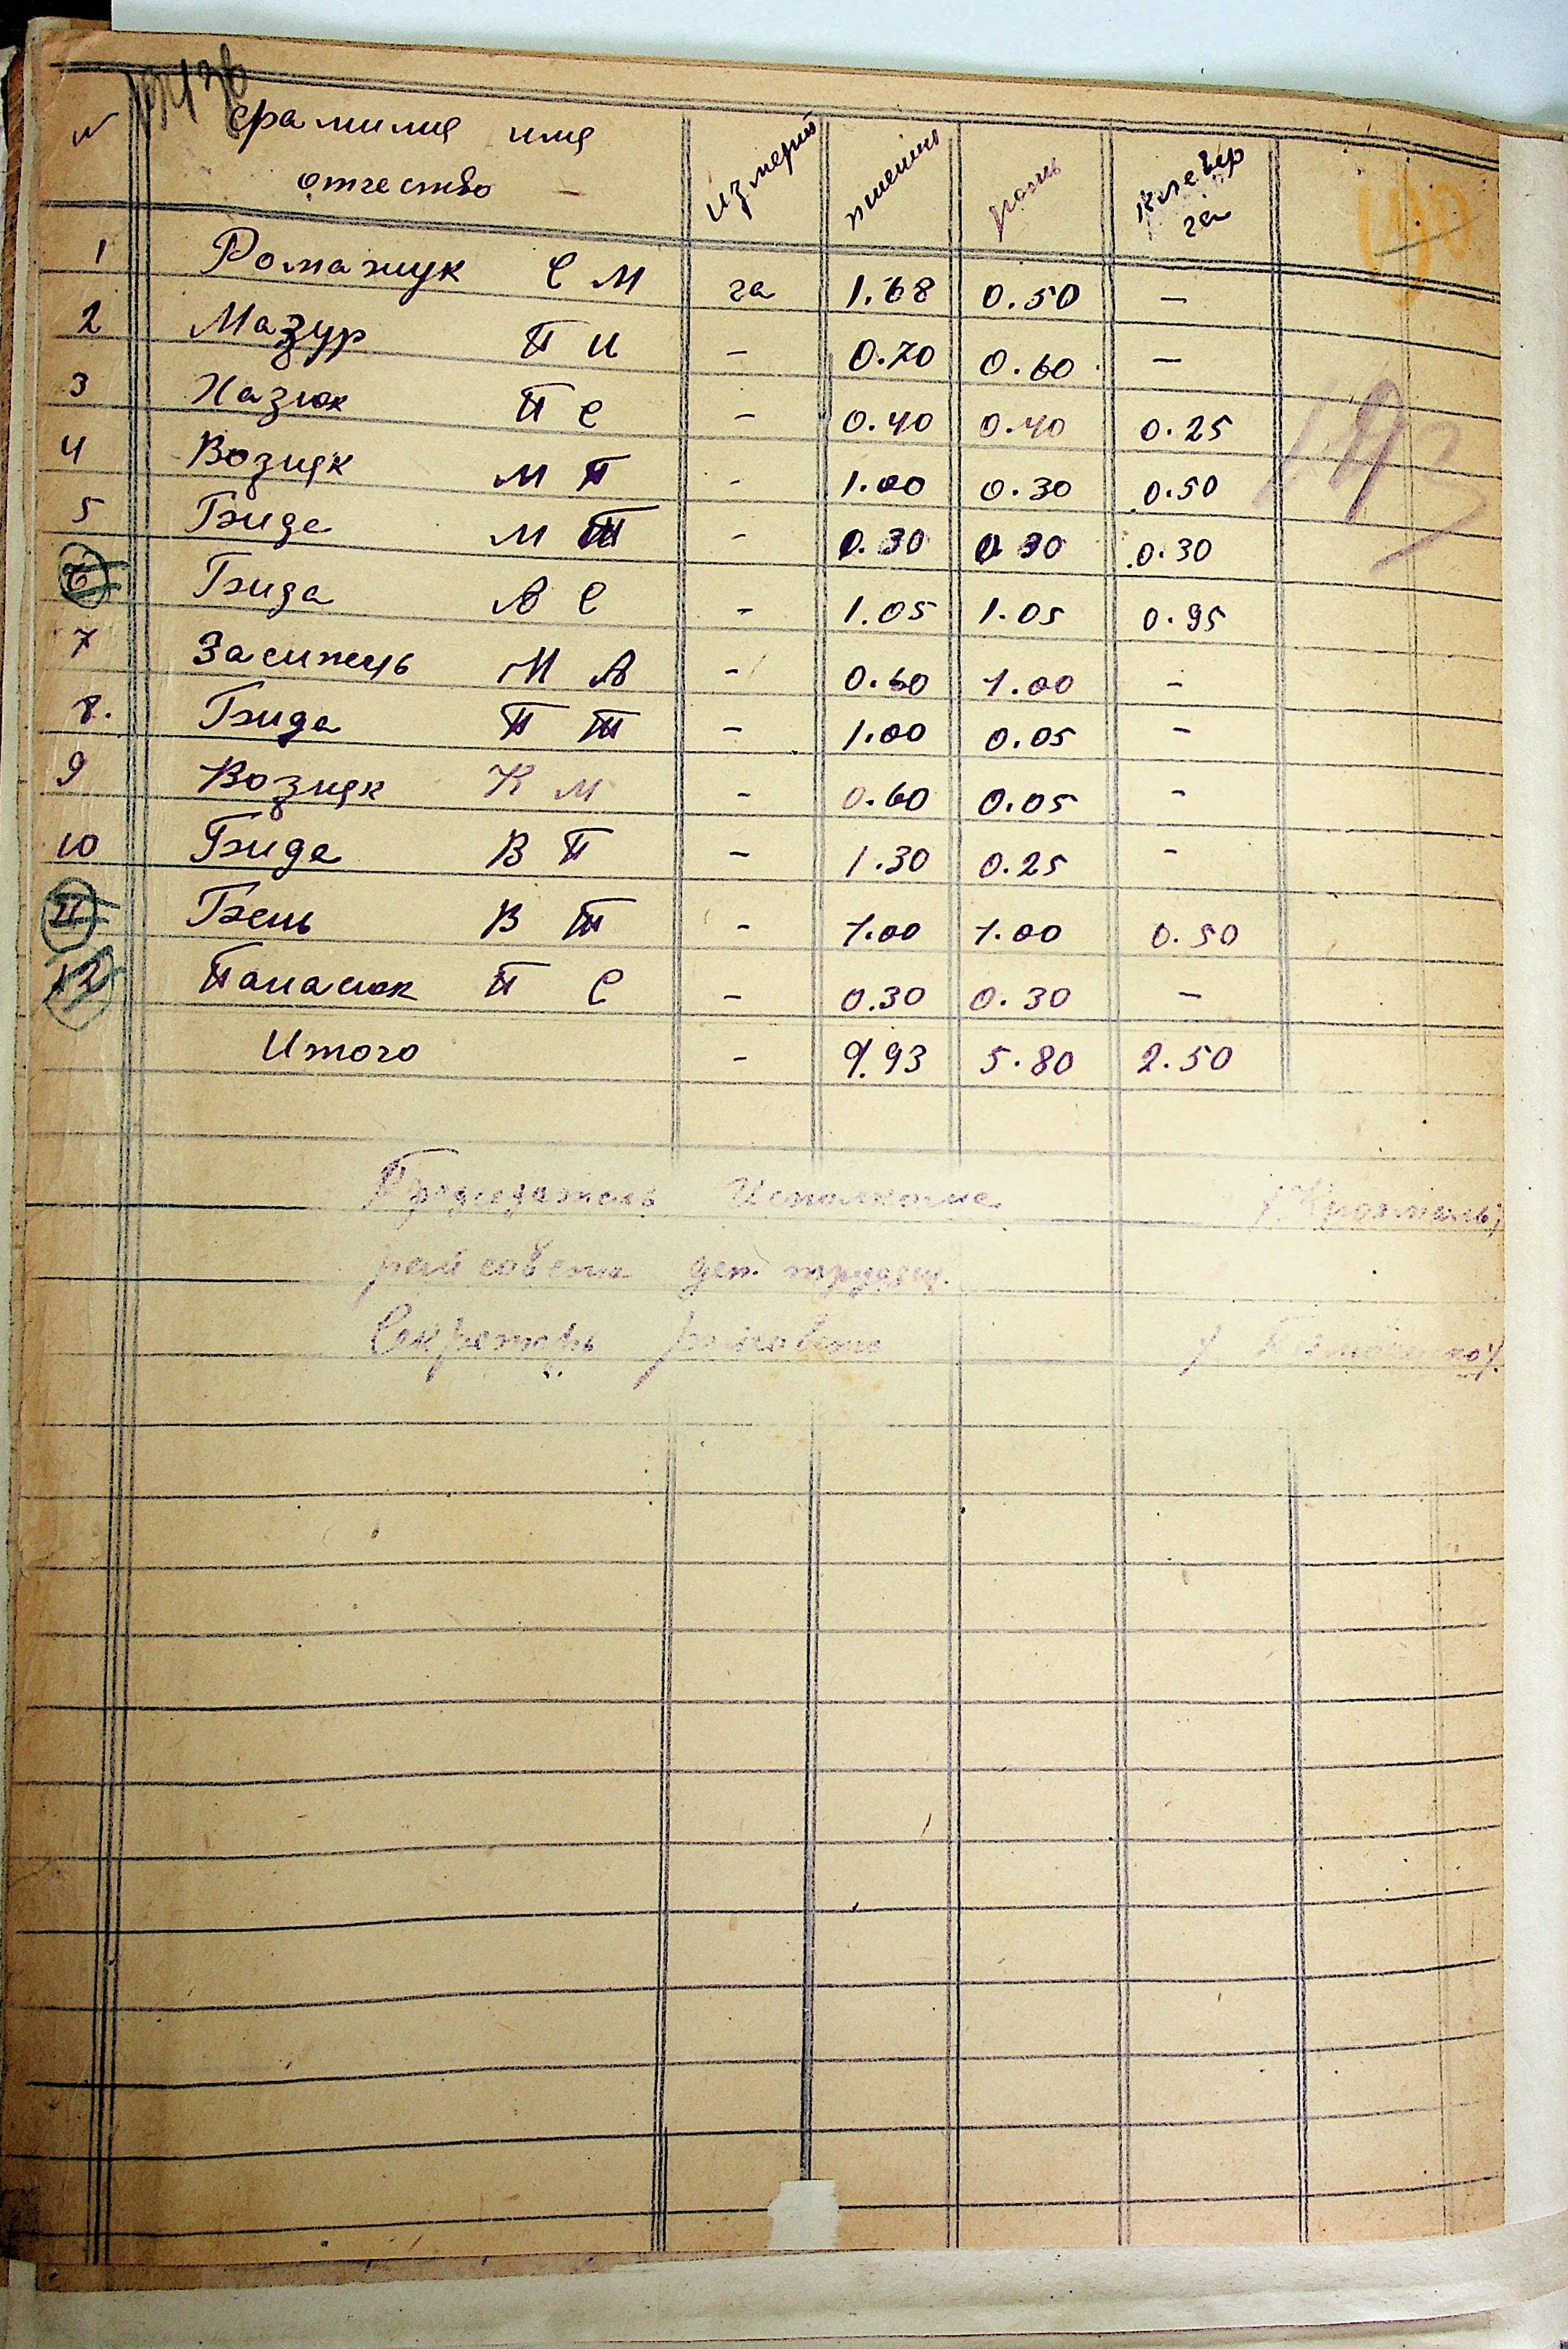 № фамилия имя отчество измерит пшениц рожь клевер га
1 Романчук С М га 1.68 0.50 —
2 Мазур П И — 0.70 0.60 —
3 Назюк П С — 0.40 0.40 0.25
4 Возняк М П - 1.00 0.30 0.50
5 Гжида М Т - 0.30 0.30 0.30
6 Гжида А С - 1.05 1.05 0.95
7 М А - 0.60 1.00 -
8. Гжида П Т - 1.00 0.05 -
9 Возняк К М - 0.60 0.05 -
10 Гжида В П - 1.30 0.25 -
11 В Т - 1.00 1.00 0.50
12 Панасюк П С - 0.30 0.30 —
Итого - 9.93 5.80 2.50
Председатель Исполкома
рай совета деп. трудящ.
Секретарь райсовета